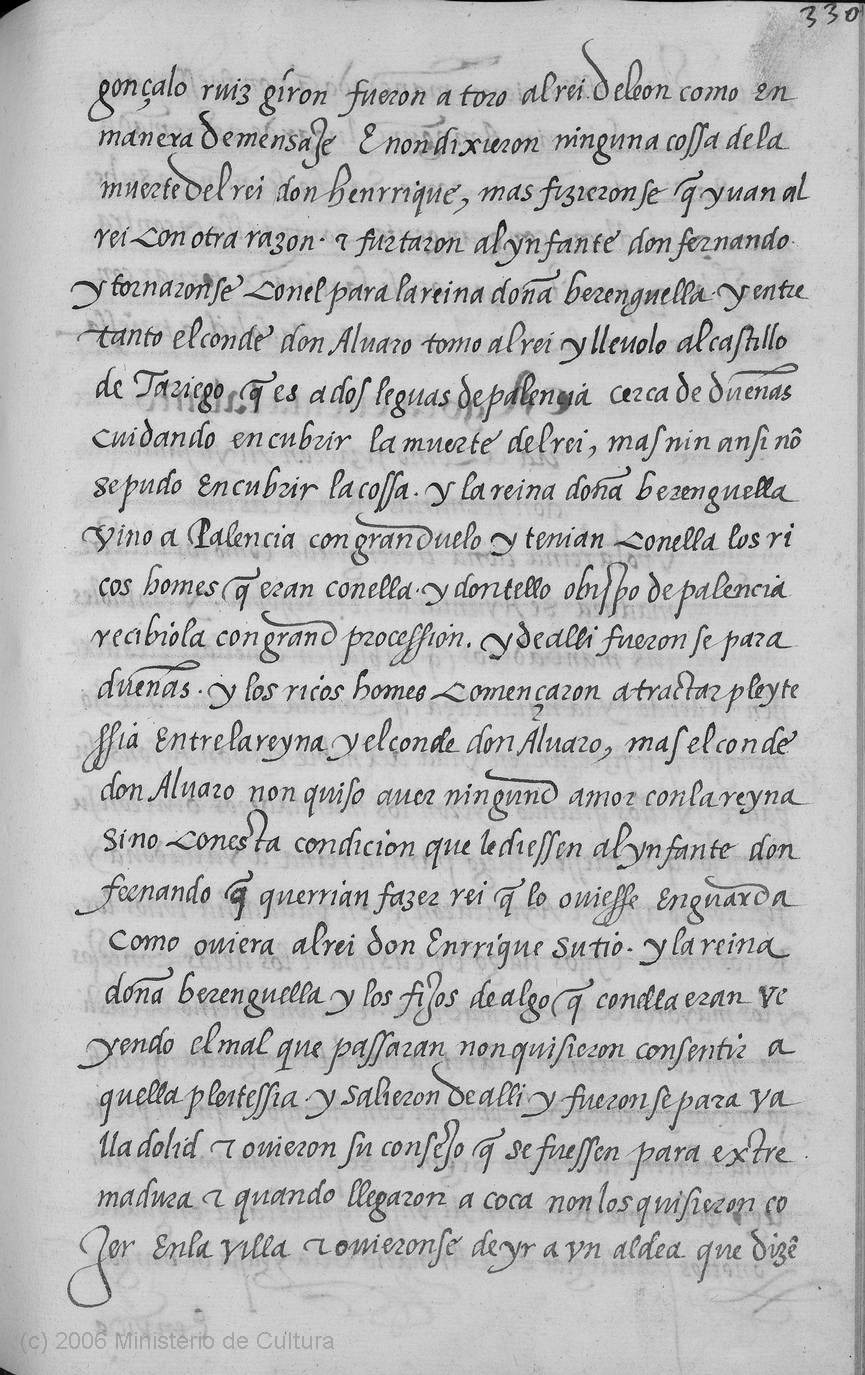 330
gonçalo ruiz giron fueron a toro al rei de leon como en
manera de mensaje E non dixieron ninguna cossa de la
muerte del rei don henrrique, mas fizieronse q̃ yuan al
rei con otra razon. τ furtaron al ynfante don fernando.
y tornaronse con el para la reina doña berenguella. y entre
tanto el conde don Alvaro tomo al rei y llevolo al castillo
de Tariego q̃ es a dos leguas de palencia cerca de dueñas
cuidando encubrir la muerte del rei, mas nin ansi nõ
se pudo encubrir la cossa. y la reina doña berenguella
vino a Palencia con grand uelo y tenian con ella los ri
cos homes q̃ eran con ella. y don tello obispo de palencia
recibiola con grand procession. y de alli fueron se para
dueñas. y los ricos homes començaron a tractar pleyte
ssia Entre la reyna y el conde don Alvaro, mas el conde
don Alvaro non quiso aver ningund amor con la reyna
sino con esta condicion que le diessen al ynfante don
fernando q̃ querrian fazer rei q̃ lo oviesse en guarda
como oviera al rei don Enrrique su tio. y la reina
doña berenguella y los fijos de algo q̃ con ella eran ve
yendo el mal que passaran non quisieron consentir a
quella pleitessia. y salieron de alli y fueron se para va
lladolid τ ovieron su consejo q̃ se fuessen para extre
madura τ quando llegaron a coca non los quisieron co
jer En la villa τ ovieronse de yr a vn aldea que dizẽ
(c) 2006 Ministerio de Cultura